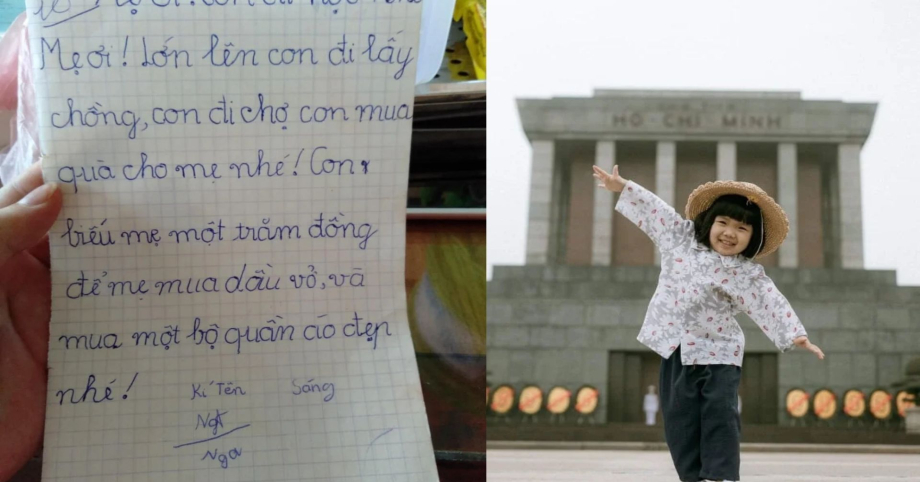 Mẹ ơi! Lớn lên con đi lấy
chồng, con đi chợ con mua
quà cho mẹ nhé! Con
biếu mẹ một trăm đồng
để mẹ mua dầu vỏ, và
mua một bộ quần áo đẹp
nhé!
Kí Tên Sáng
Nga
HỒ CHÍ MINH